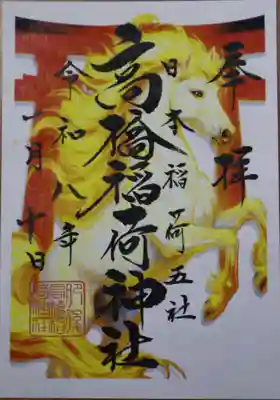 奉拝
日本稲荷五社
高橋稲荷神社
令和八年
一月十日